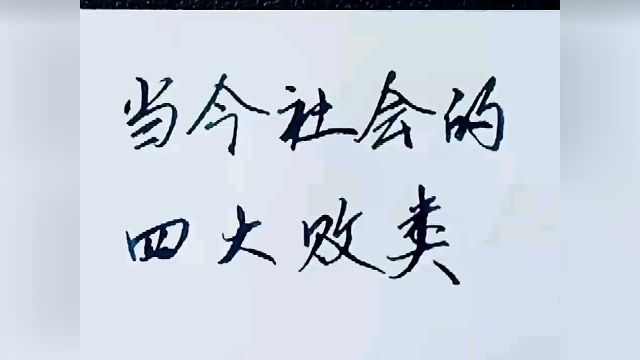 当今社会的
四大败类